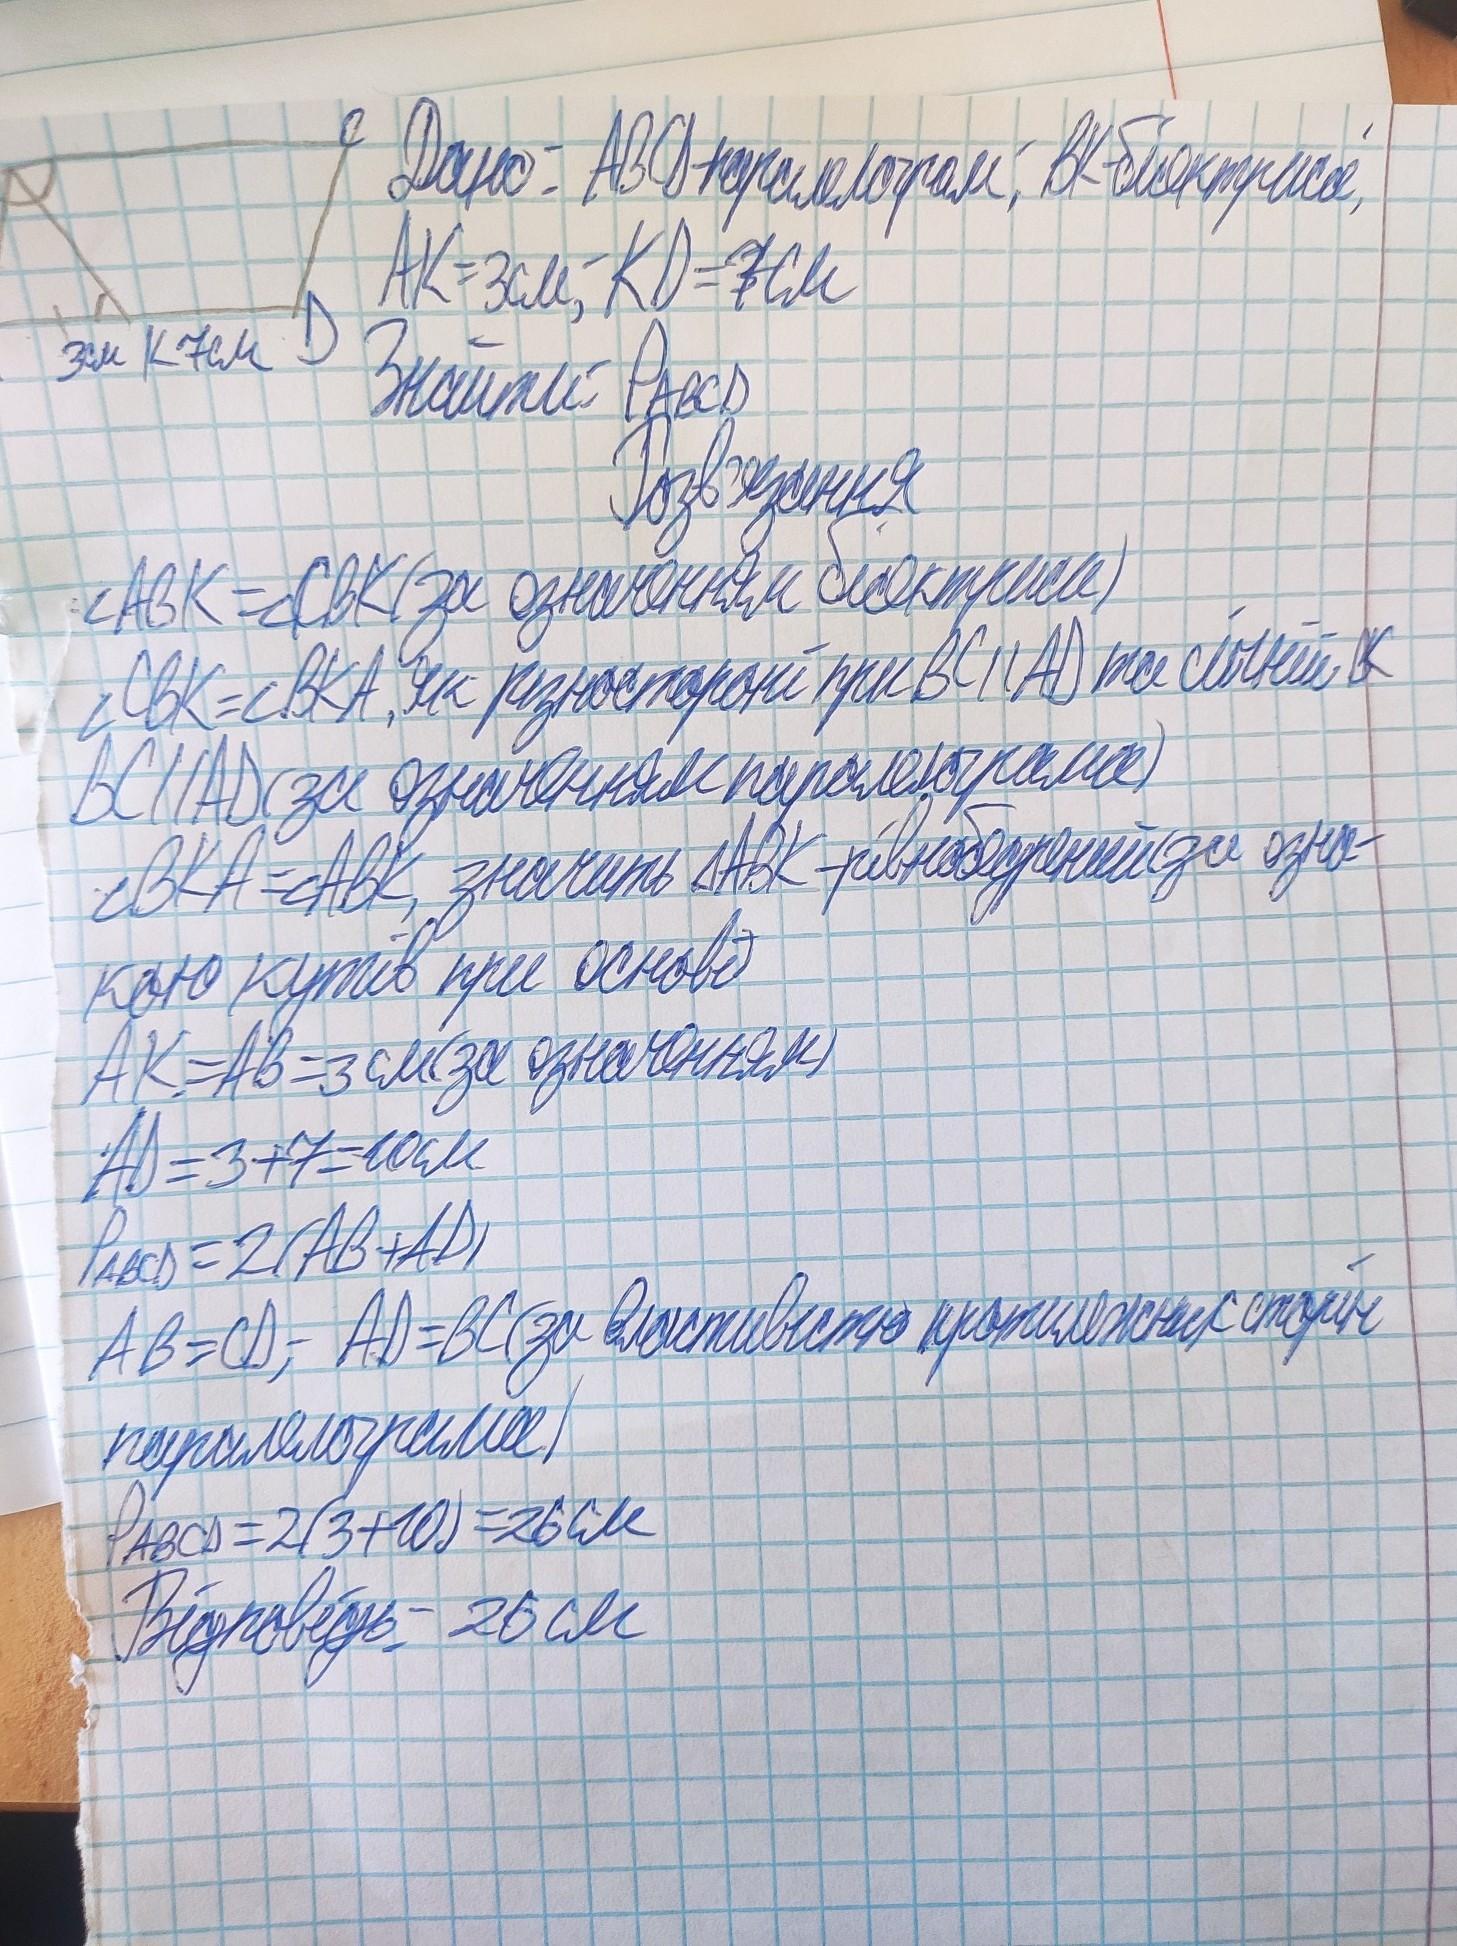 C
Дано: ABCD-паралелограм; BK-бісектриса,
AK=3см; KD=7см
3см K 7см D
Знайти: PABCD
Розв'язання
∠ABK=∠CBK(за означенням бісектриси)
∠CBK=∠BKA, як різносторонні при BC||AD та січній BK
BC||AD(за означенням паралелограма)
∠BKA=∠ABK, значить ΔABK-рівнобедрений(за озна-
кою кутів при основі)
AK=AB=3см(за означенням)
AD=3+7=10см
PABCD=2(AB+AD)
AB=CD; AD=BC(за властивістю протилежних сторін
паралелограма)
PABCD=2(3+10)=26см
Відповідь: 26см